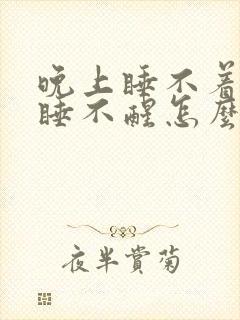 晚上睡不着
睡不醒怎麼
夜半賞菊